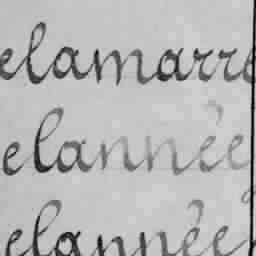 elamarre
elannée
elannée